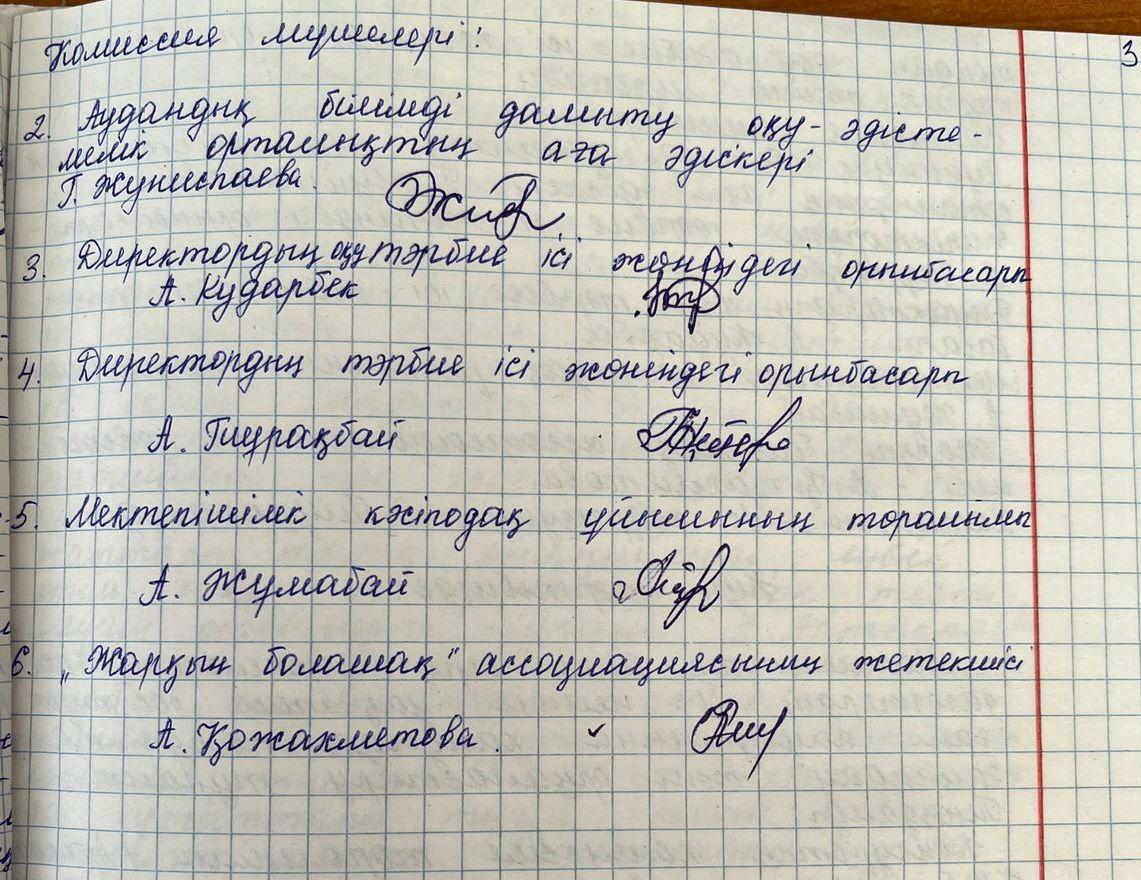 3
Комиссия мүшелері:
2. Аудандық білімді дамыту оқу-әдісте-
мелік орталықтың аға әдіскері
Г. Жуниспаева.
3. Директордың оқу тәрбие ісі жөніндегі орынбасары
А. Кударбек
4. Директордың тәрбие ісі жөніндегі орынбасары
А. Тиурақбай
5. Мектепішілік кәсіподақ ұйымының торалымы
А. Жумабай
6. „Жарқын болашақ" ассоциациясының жетекшісі
А. Қожахметова.